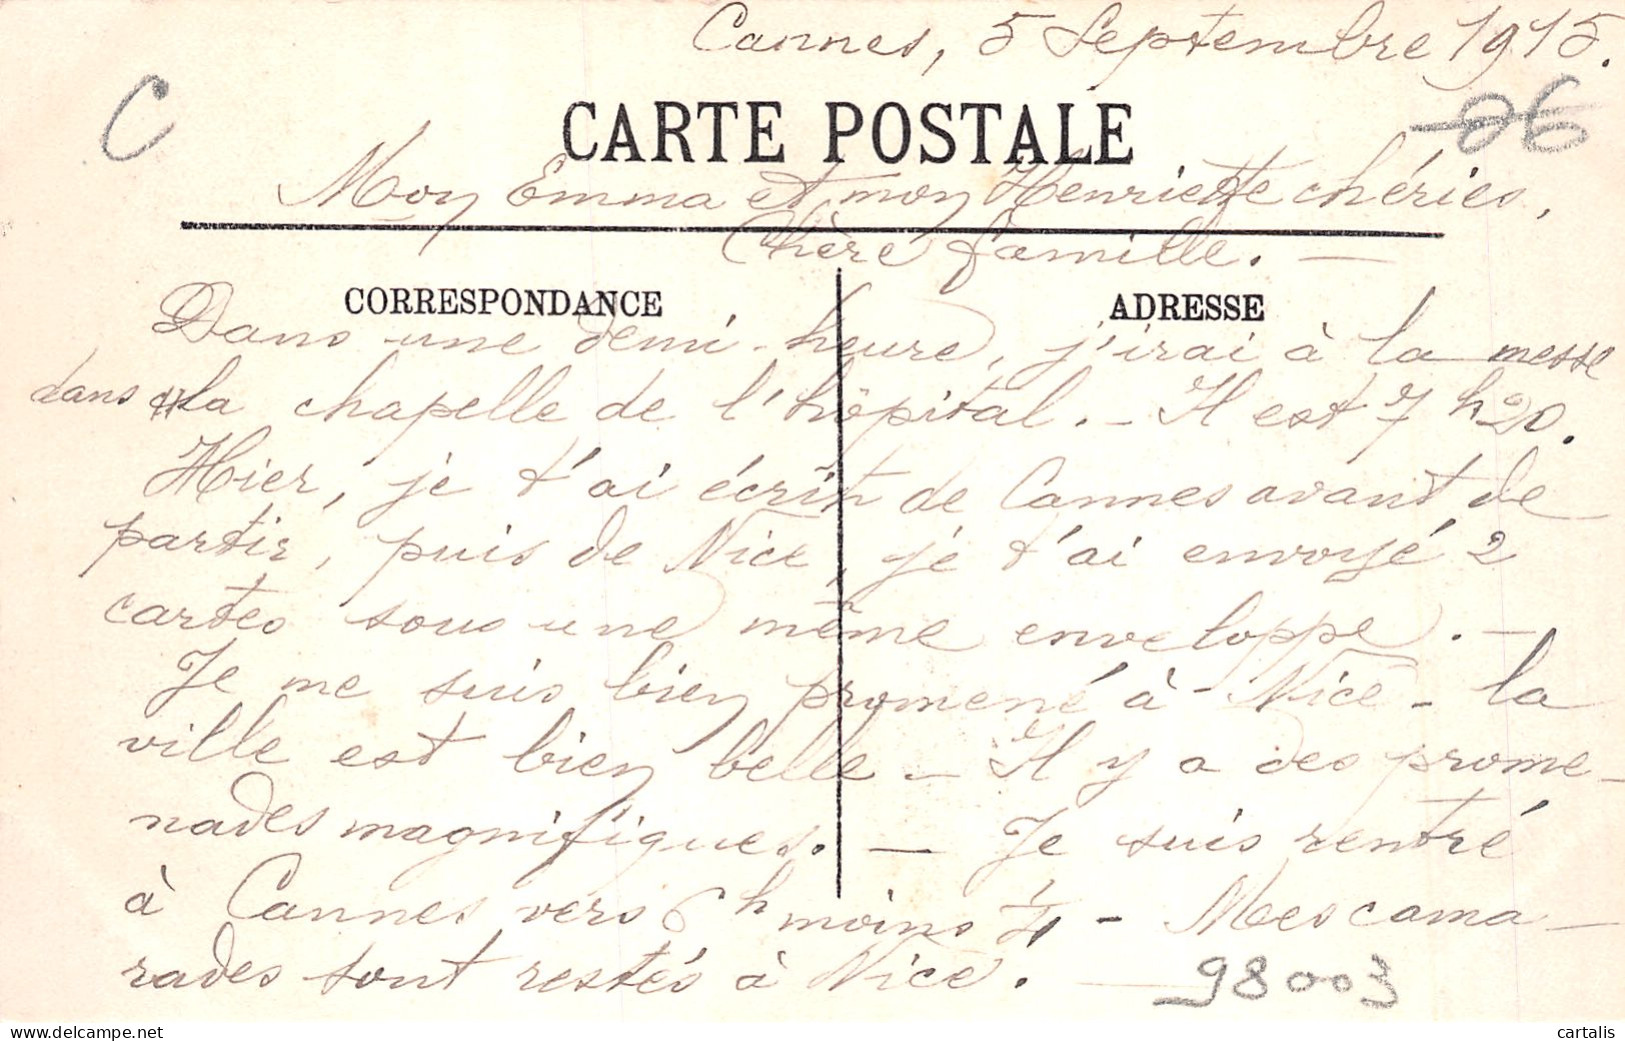 Cannes, 5 Septembre 1915.
C
06
CARTE POSTALE
Mon Emma et mon Henriette chéries,
Chère famille. —
CORRESPONDANCE
ADRESSE
Dans une demi-heure, j'irai à la messe
dans la chapelle de l'hôpital. - Il est 7 h 20.
Hier, je t'ai écrit de Cannes avant de
partir, puis de Nice, je t'ai envoyé 2
cartes sous une même enveloppe. -
Je me suis bien promené à Nice - la
ville est bien belle - Il y a des prome-
nades magnifiques. — Je suis rentré
à Cannes vers 6h moins 1/4 - Mes cama-
rades sont restés à Nice. —
98003
cartalis
delcampe.net